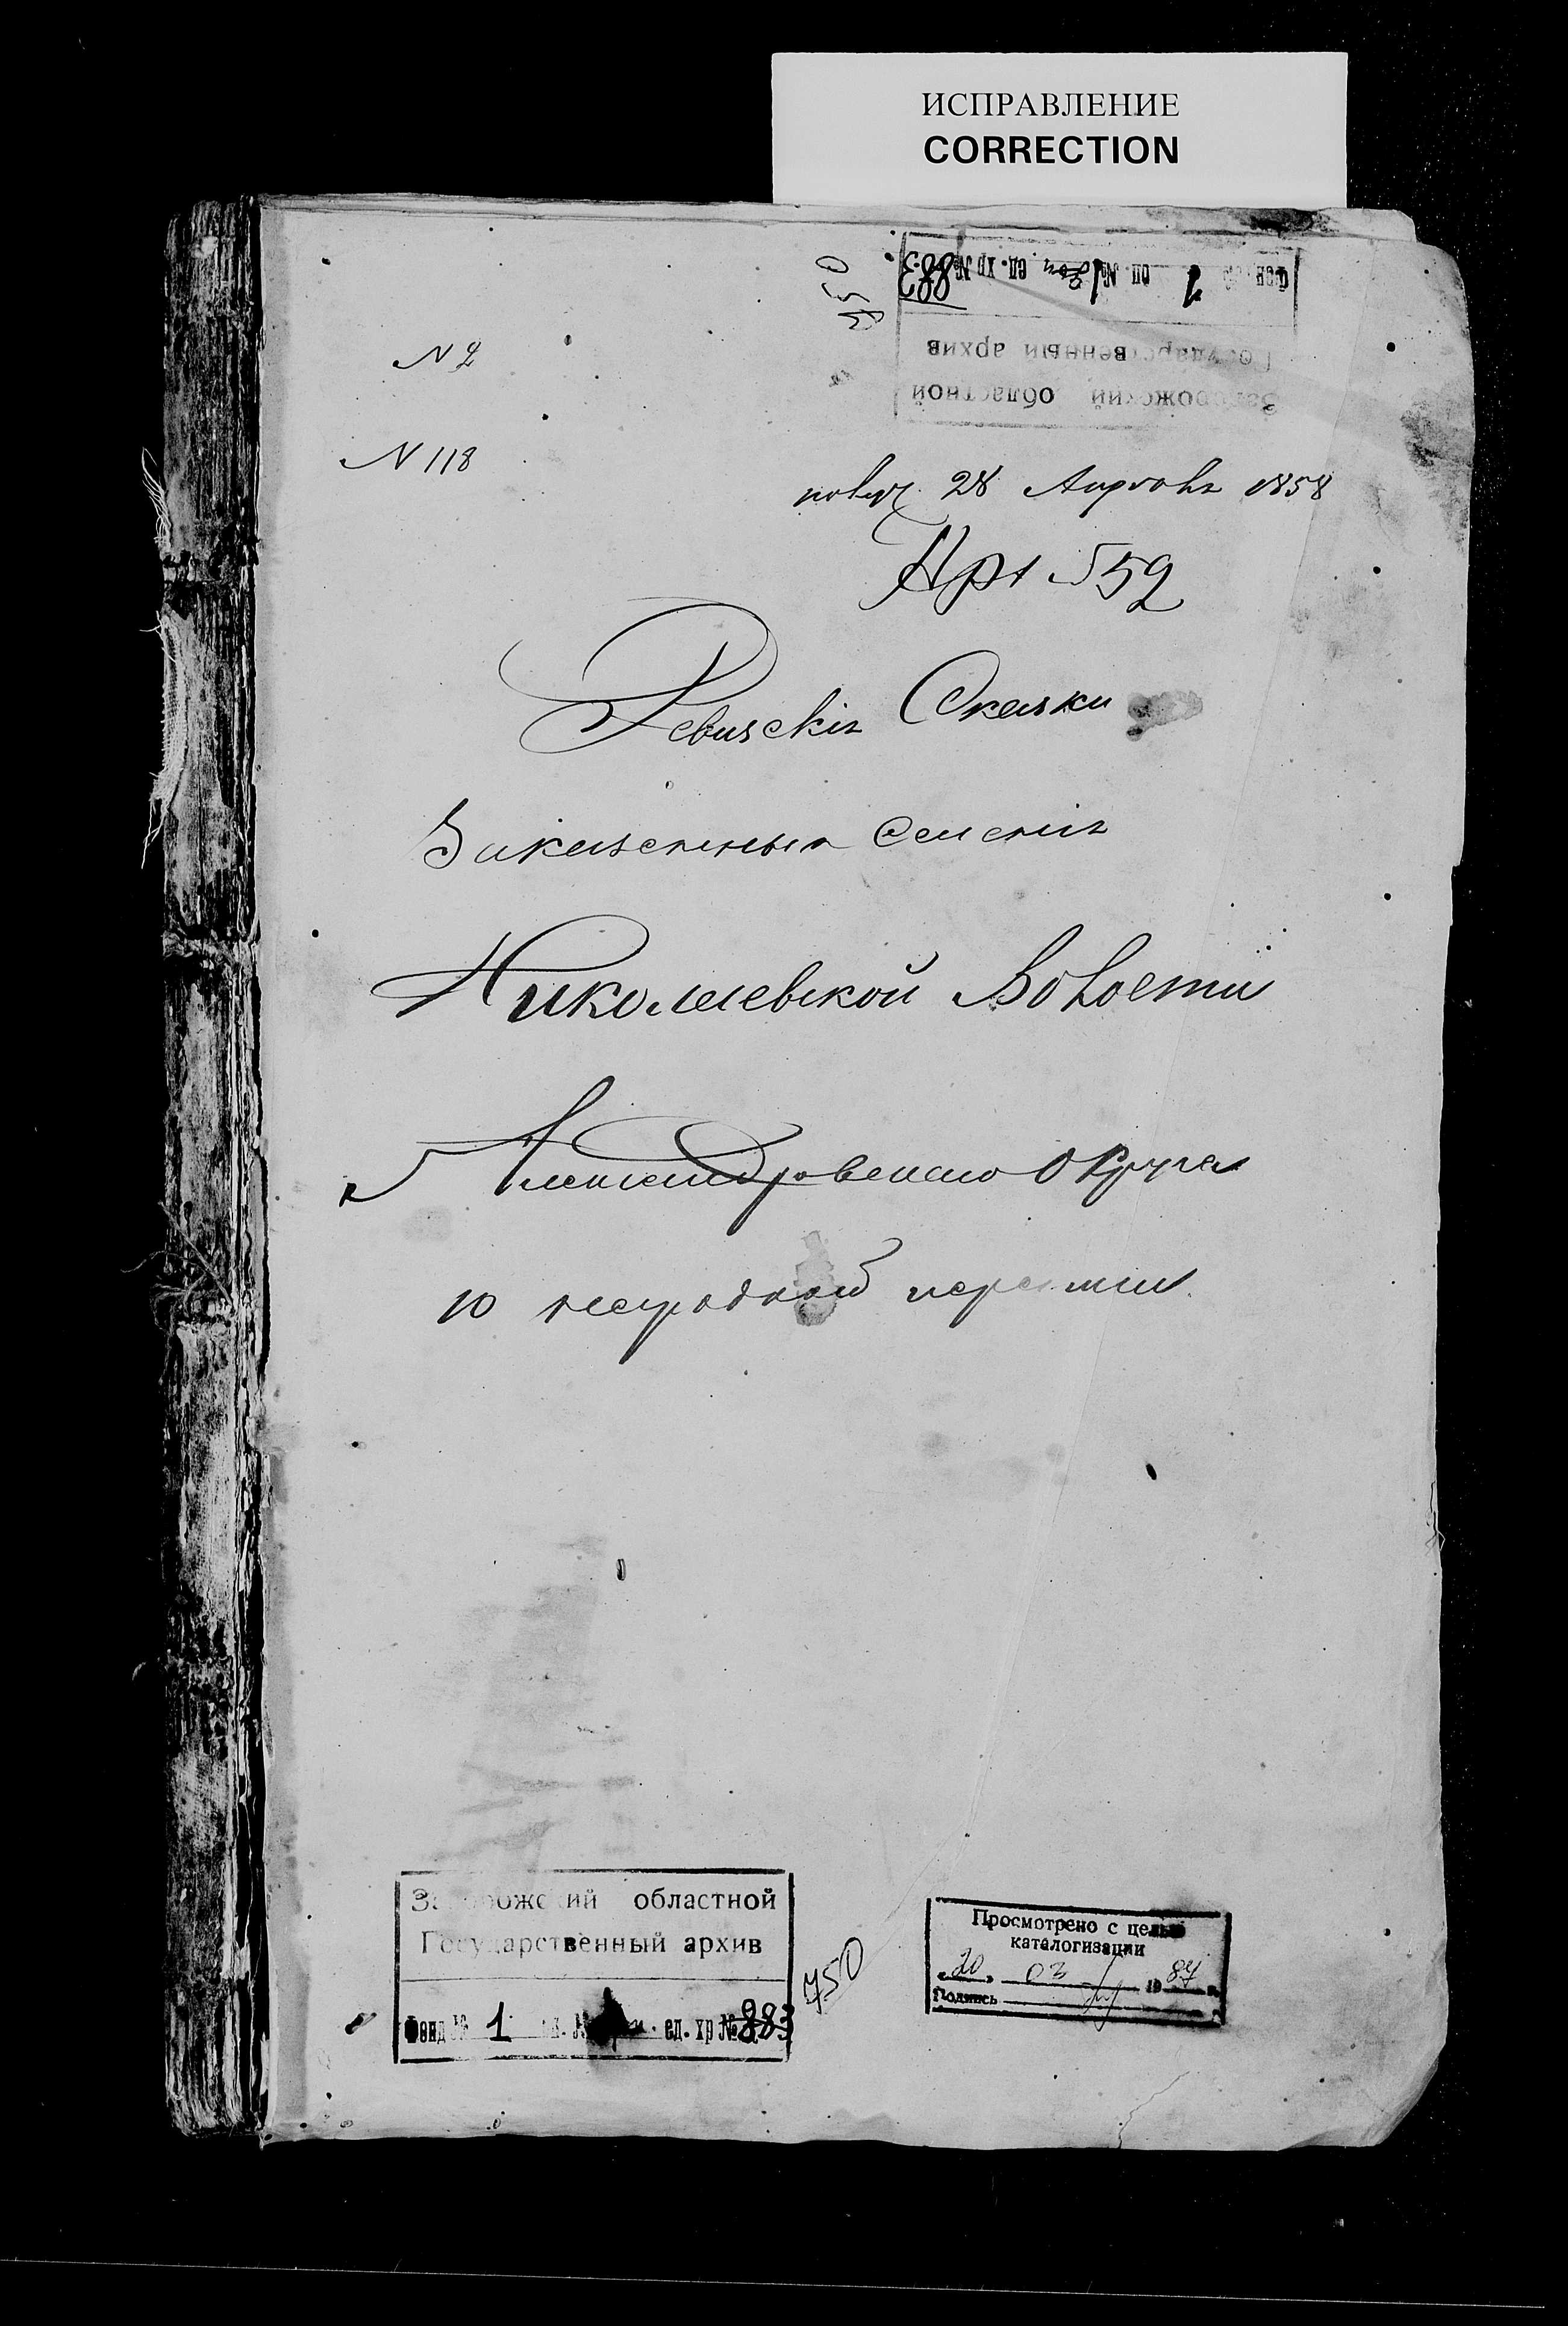 ИСПРАВЛЕНИЕ
CORRECTION
Фонд № 1 оп. № доп. ед. хр № 883
Государственный архив
Запорожский областной
750
N 2
N 118
получ. 28 Апреля 1858
Ревизскія Сказки
Казенныхъ Селеній
Николаевской Волости
Александровскаго Округа
10 народной переписи
Запорожский областной
Государственный архив
Фонд № 1 ед. хр № 883
750
Просмотрено с целью
каталогизации
„20“ 03 1987 г.
Подпись